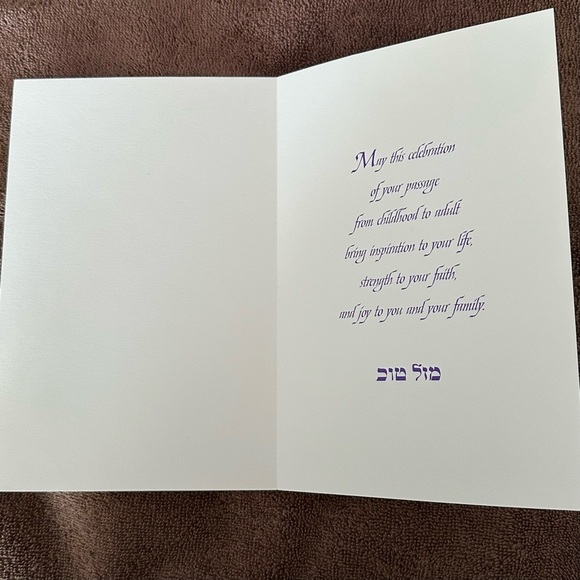 May this celebration
of your passage
from childhood to adult
bring inspiration to your life,
strength to your faith,
and joy to you and your family.
מזל טוב